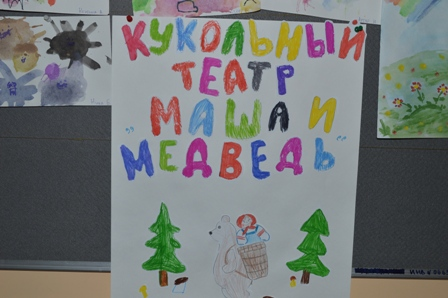 КУКОЛЬНЫЙ
ТЕАТР
„МАША И
МЕДВЕДЬ"